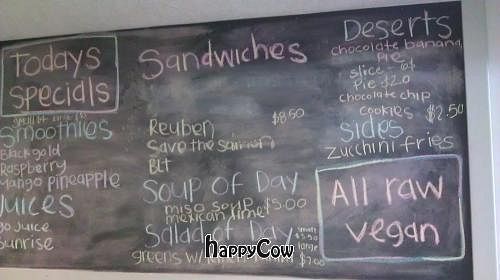 Todays
Specials
Smoothies
Blackgold
Raspberry
Mango pineapple
Juices
go juice
Sunrise
Sandwiches
Reuben $8.50
Save the salmon
BLT
Soup of Day
miso soup $5.00
mexican lime
Salad of Day
small
$5.50
large
greens w/
Deserts
chocolate banana
Pie
slice
Pie $20
chocolate chip
cookies $2.50
Sides
zucchini fries
All raw
vegan
HappyCow